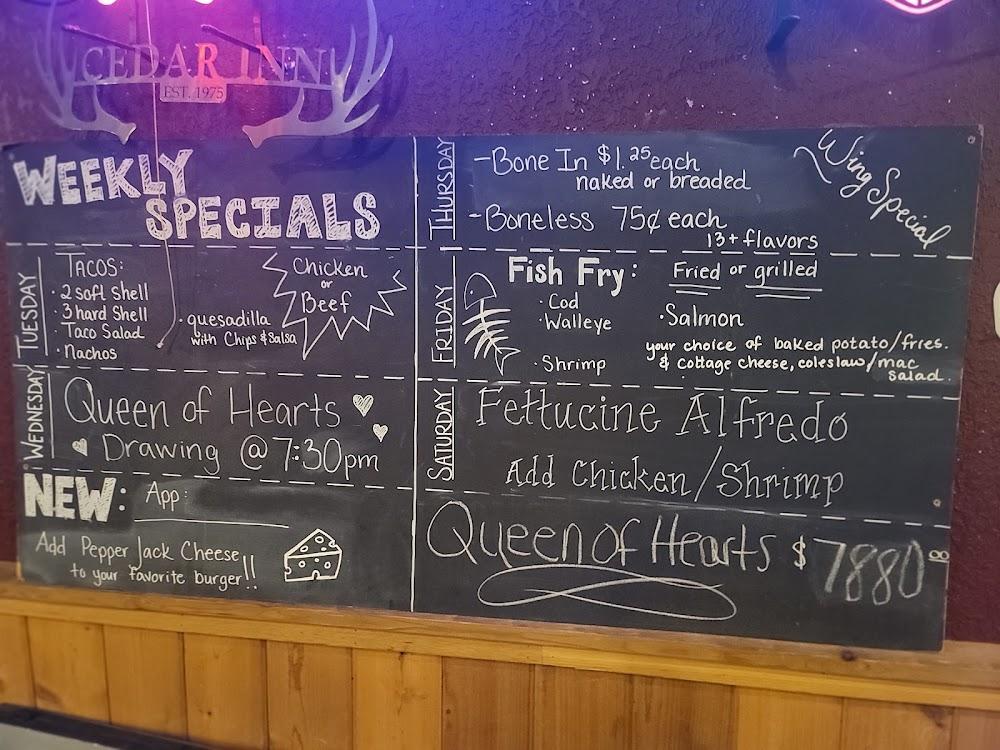 CEDAR INN
EST. 1975
WEEKLY
SPECIALS
TUESDAY
TACOS:
· 2 soft shell
· 3 hard Shell
· Taco Salad
· Nachos
· quesadilla
with Chips & Salsa
Chicken
or
Beef
WEDNESDAY
Queen of Hearts
Drawing @ 7:30pm
NEW: App:
Add Pepper Jack Cheese
to your favorite burger!!
THURSDAY
Wing Special
-Bone In $1.25 each
naked or breaded
-Boneless 75¢ each
13+ flavors
FRIDAY
Fish Fry: Fried or grilled
· Cod
· Walleye
· Shrimp
· Salmon
your choice of baked potato/fries.
& cottage cheese, coleslaw/mac
salad.
SATURDAY
Fettucine Alfredo
Add Chicken/Shrimp
Queen of Hearts $7880.00